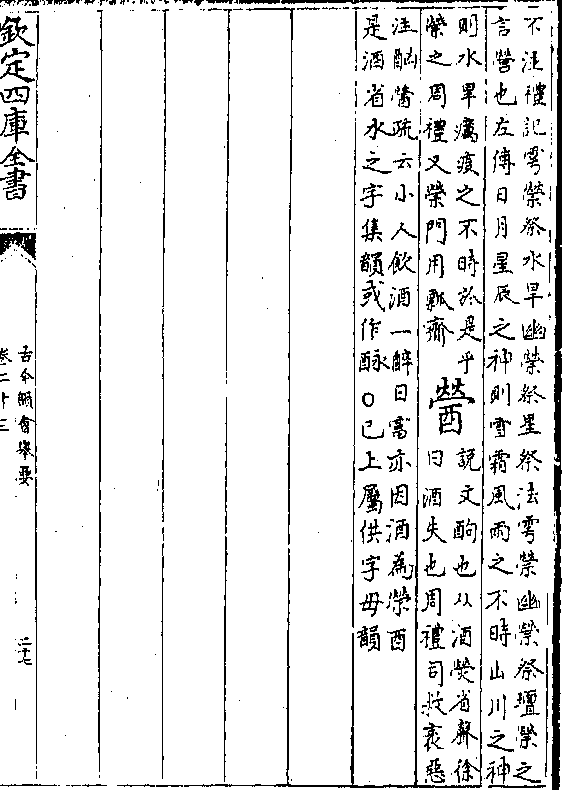 不注禮記雩禜祭水旱幽禜祭星祭法雩禜幽禜祭壇禜之
言營也左傳日月星辰之神則雪霜風雨之不時山川之神
則水旱癘疫之不時於是乎
禜之周禮又禜門用瓢齎
醟
說文酗也从酒熒省聲徐
曰酒失也周禮司救衺惡
注酗醟疏云小人飲酒一醉日富亦因酒為榮酉
是酒省水之字集韻或作酳○已上屬供字母韻
欽定四庫全書
古今韻會舉要
卷二十三
二十七